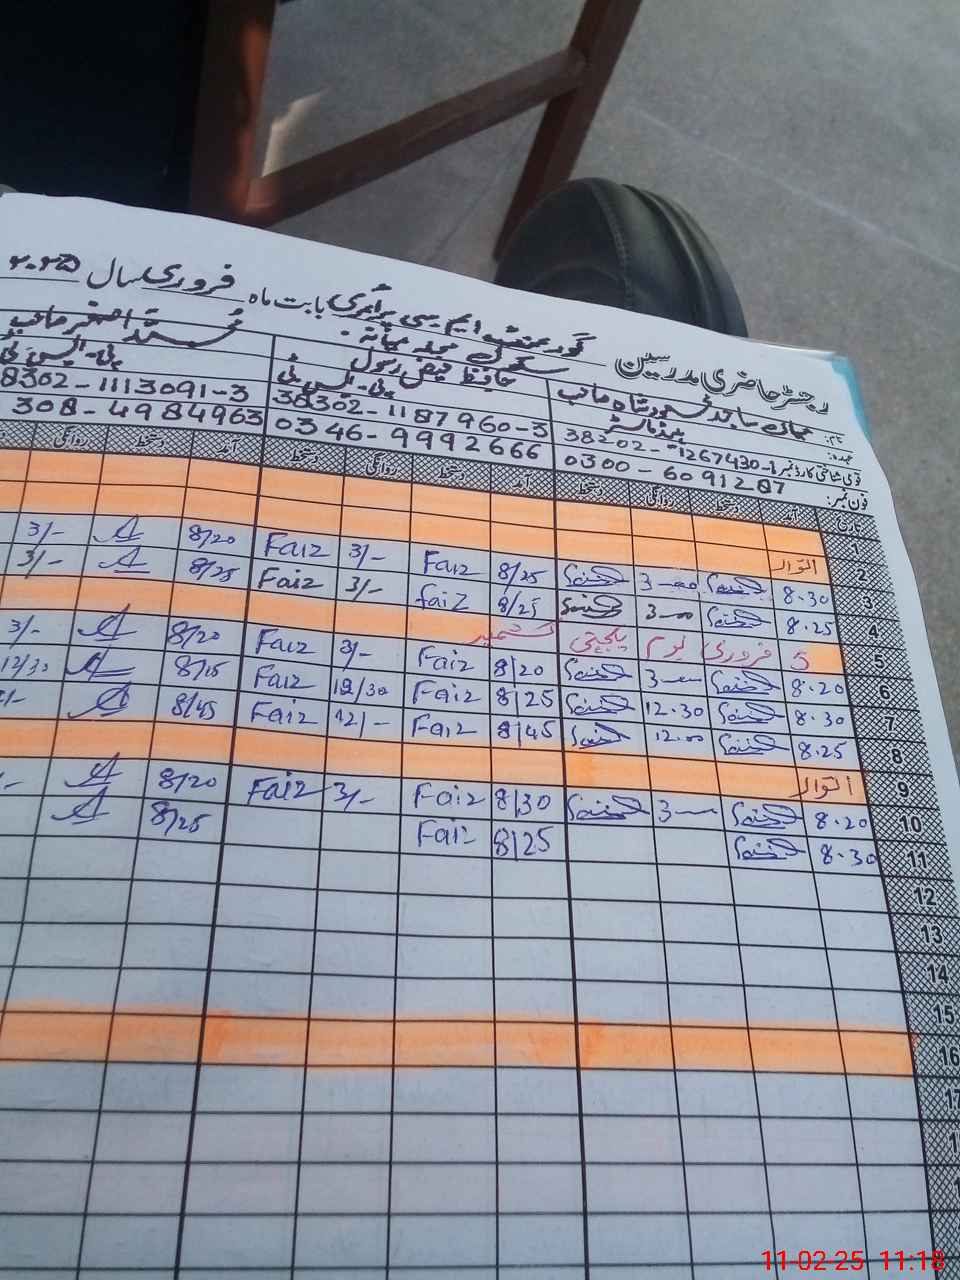 رجسٹر حاضری مدرسین گورنمنٹ ایم سی پرائمری سکول محلہ میانہ بابت ماہ فروری سال ۲۰۲۵
نام: ساجد شاہ صاحب حافظ فیض رسول محمد اصغر صاحب
عہدہ: ہیڈماسٹر پی-ایس-ٹی پی-ایس-ٹی
قومی شناختی کارڈ نمبر 38202-1267430-1 38302-1187960-3 8302-1113091-3
فون نمبر: 0300-6091287 0346-9992666 308-4984963
تاریخ آمد دستخط روانگی دستخط آمد دستخط روانگی دستخط آمد دستخط روانگی
2 اتوار
3 8.30 3-00 8/25 Faiz 3/- Faiz 8/20 3/-
4 8.25 3-00 8/25 Faiz 3/- Faiz 8/25 3/-
5 5 فروری یوم یکجہتی کشمیر
6 8.20 3-00 8/20 Faiz 3/- Faiz 8/20 3/-
7 8.30 12.30 8/25 Faiz 12/30 Faiz 8/15 12/30
8 8.25 12.00 8/45 Faiz 12/- Faiz 8/45
9 اتوار
10 8.20 3-00 8/30 Faiz 3/- Faiz 8/20
11 8.30 8/25 Faiz 8/25
12
13
14
15
16
17
11-02-25 11:18